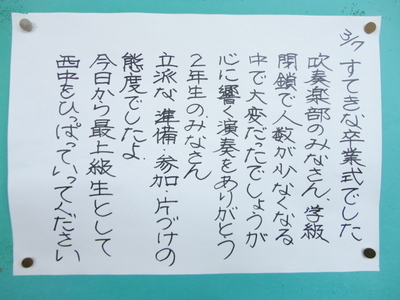 3/7 すてきな卒業式でした
吹奏楽部のみなさん、学級
閉鎖で人数が少なくなる
中で大変だったでしょうが
心に響く演奏をありがとう
2年生のみなさん
立派な準備・参加・片づけの
態度でしたよ
今日から最上級生として
西中をひっぱっていってください